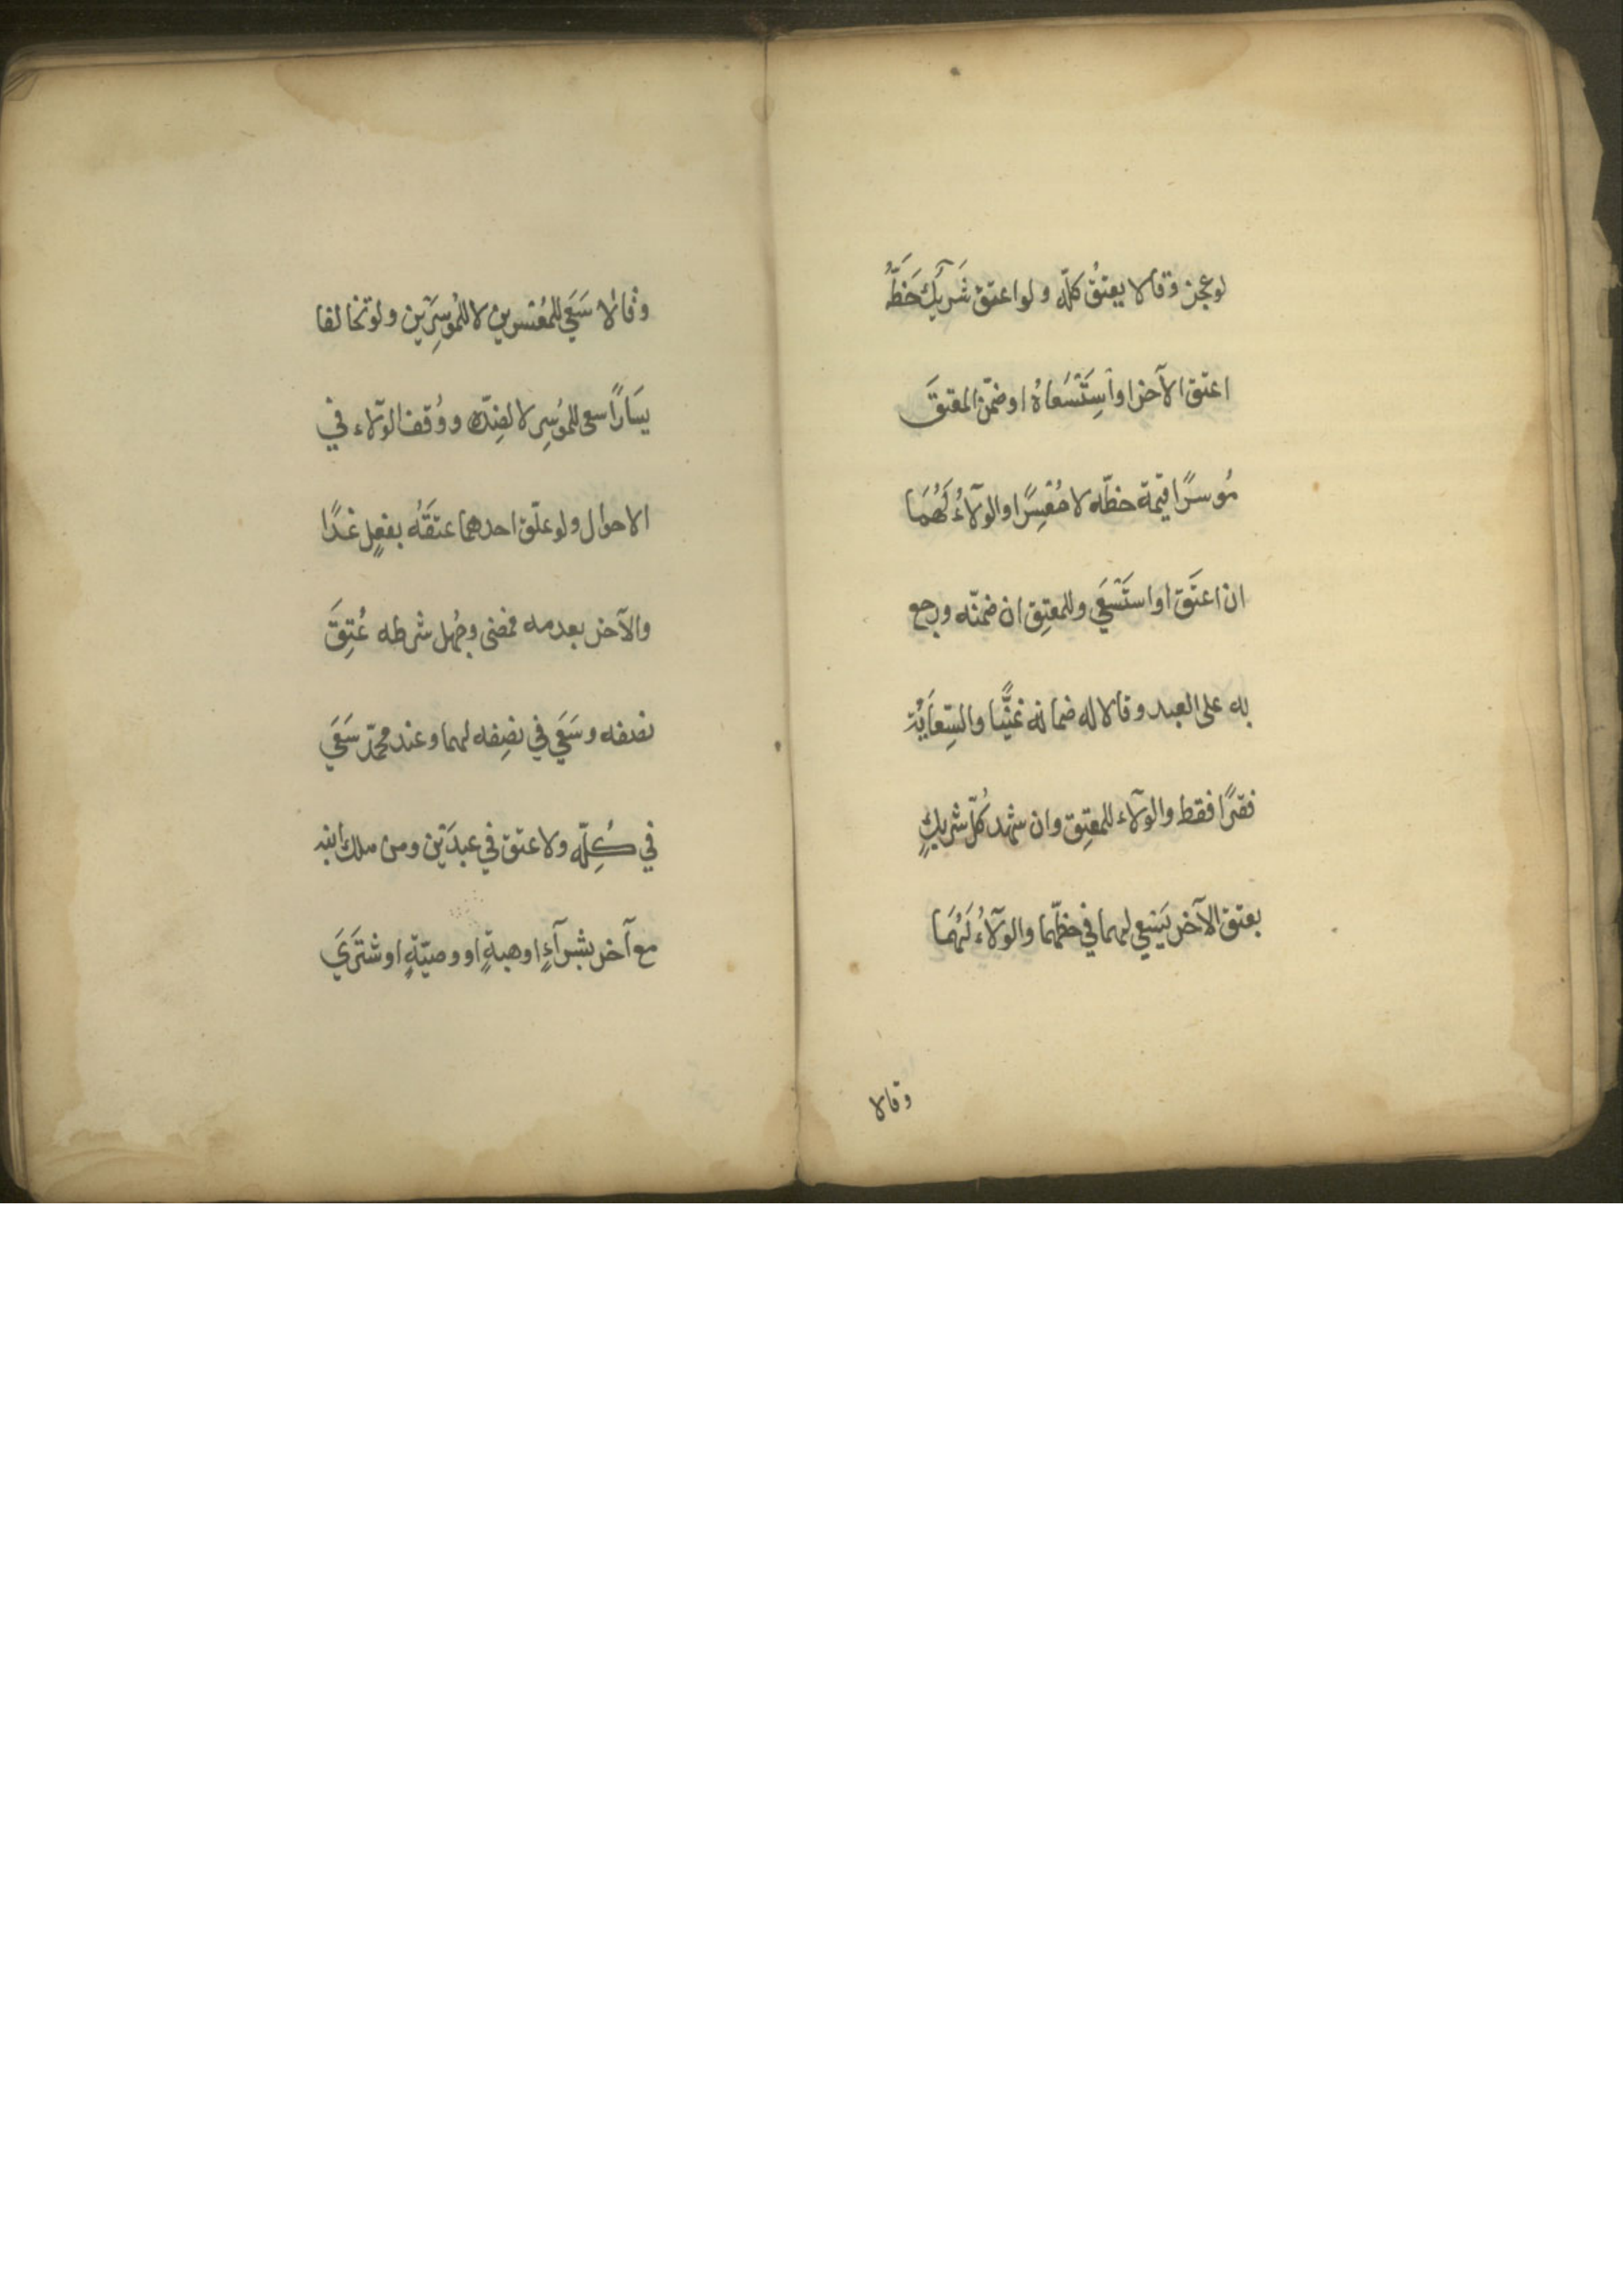 لو عجز وقالا يعتقُ كلّه ولو اعتق شَرِيكٌ حَظَّهُ
اعتق الآخر اواسِتَسْعَاهُ او ضمّن المعتقَ
مُوسرًا قيمة حظّه لا مُعْسِرًا والوَلآءُ لَهُمَا
ان اعتَقَ او استَسْعَي وللمعتِق ان ضمنّه ورجع
به على العبد وقالا له ضمانه غنيًّا والسِّعَايَةُ
فقرًا فقط والوَلآء للمعتِق وان شهد كُلّ شريكٍ
بعتق الآخر يَسْعِي لهما في حظّهما والوَلآءُ لَهُمَا
وقالا
وقالا سَعَي للمُعْسرين لا للمُوسِرَيْن ولو تخالفا
يسَارًا سعى للمُوسِر لا لضِدّه ووُقف الوَلآء في
الاحوال ولو علّق احدهما عتقَهُ بفعلٍ غدًا
والآخر بعدمه فمضى وجُهل شرطه عُتِقَ
نصفه وسَعَي في نصِفه لهما وعند محمّد سَعَي
في كُلِّه ولا عتق في عبدَيْن ومن ملك ابنه
مع آخر بشرآءٍ او هبةٍ او وصيّةٍ او شتَرَي